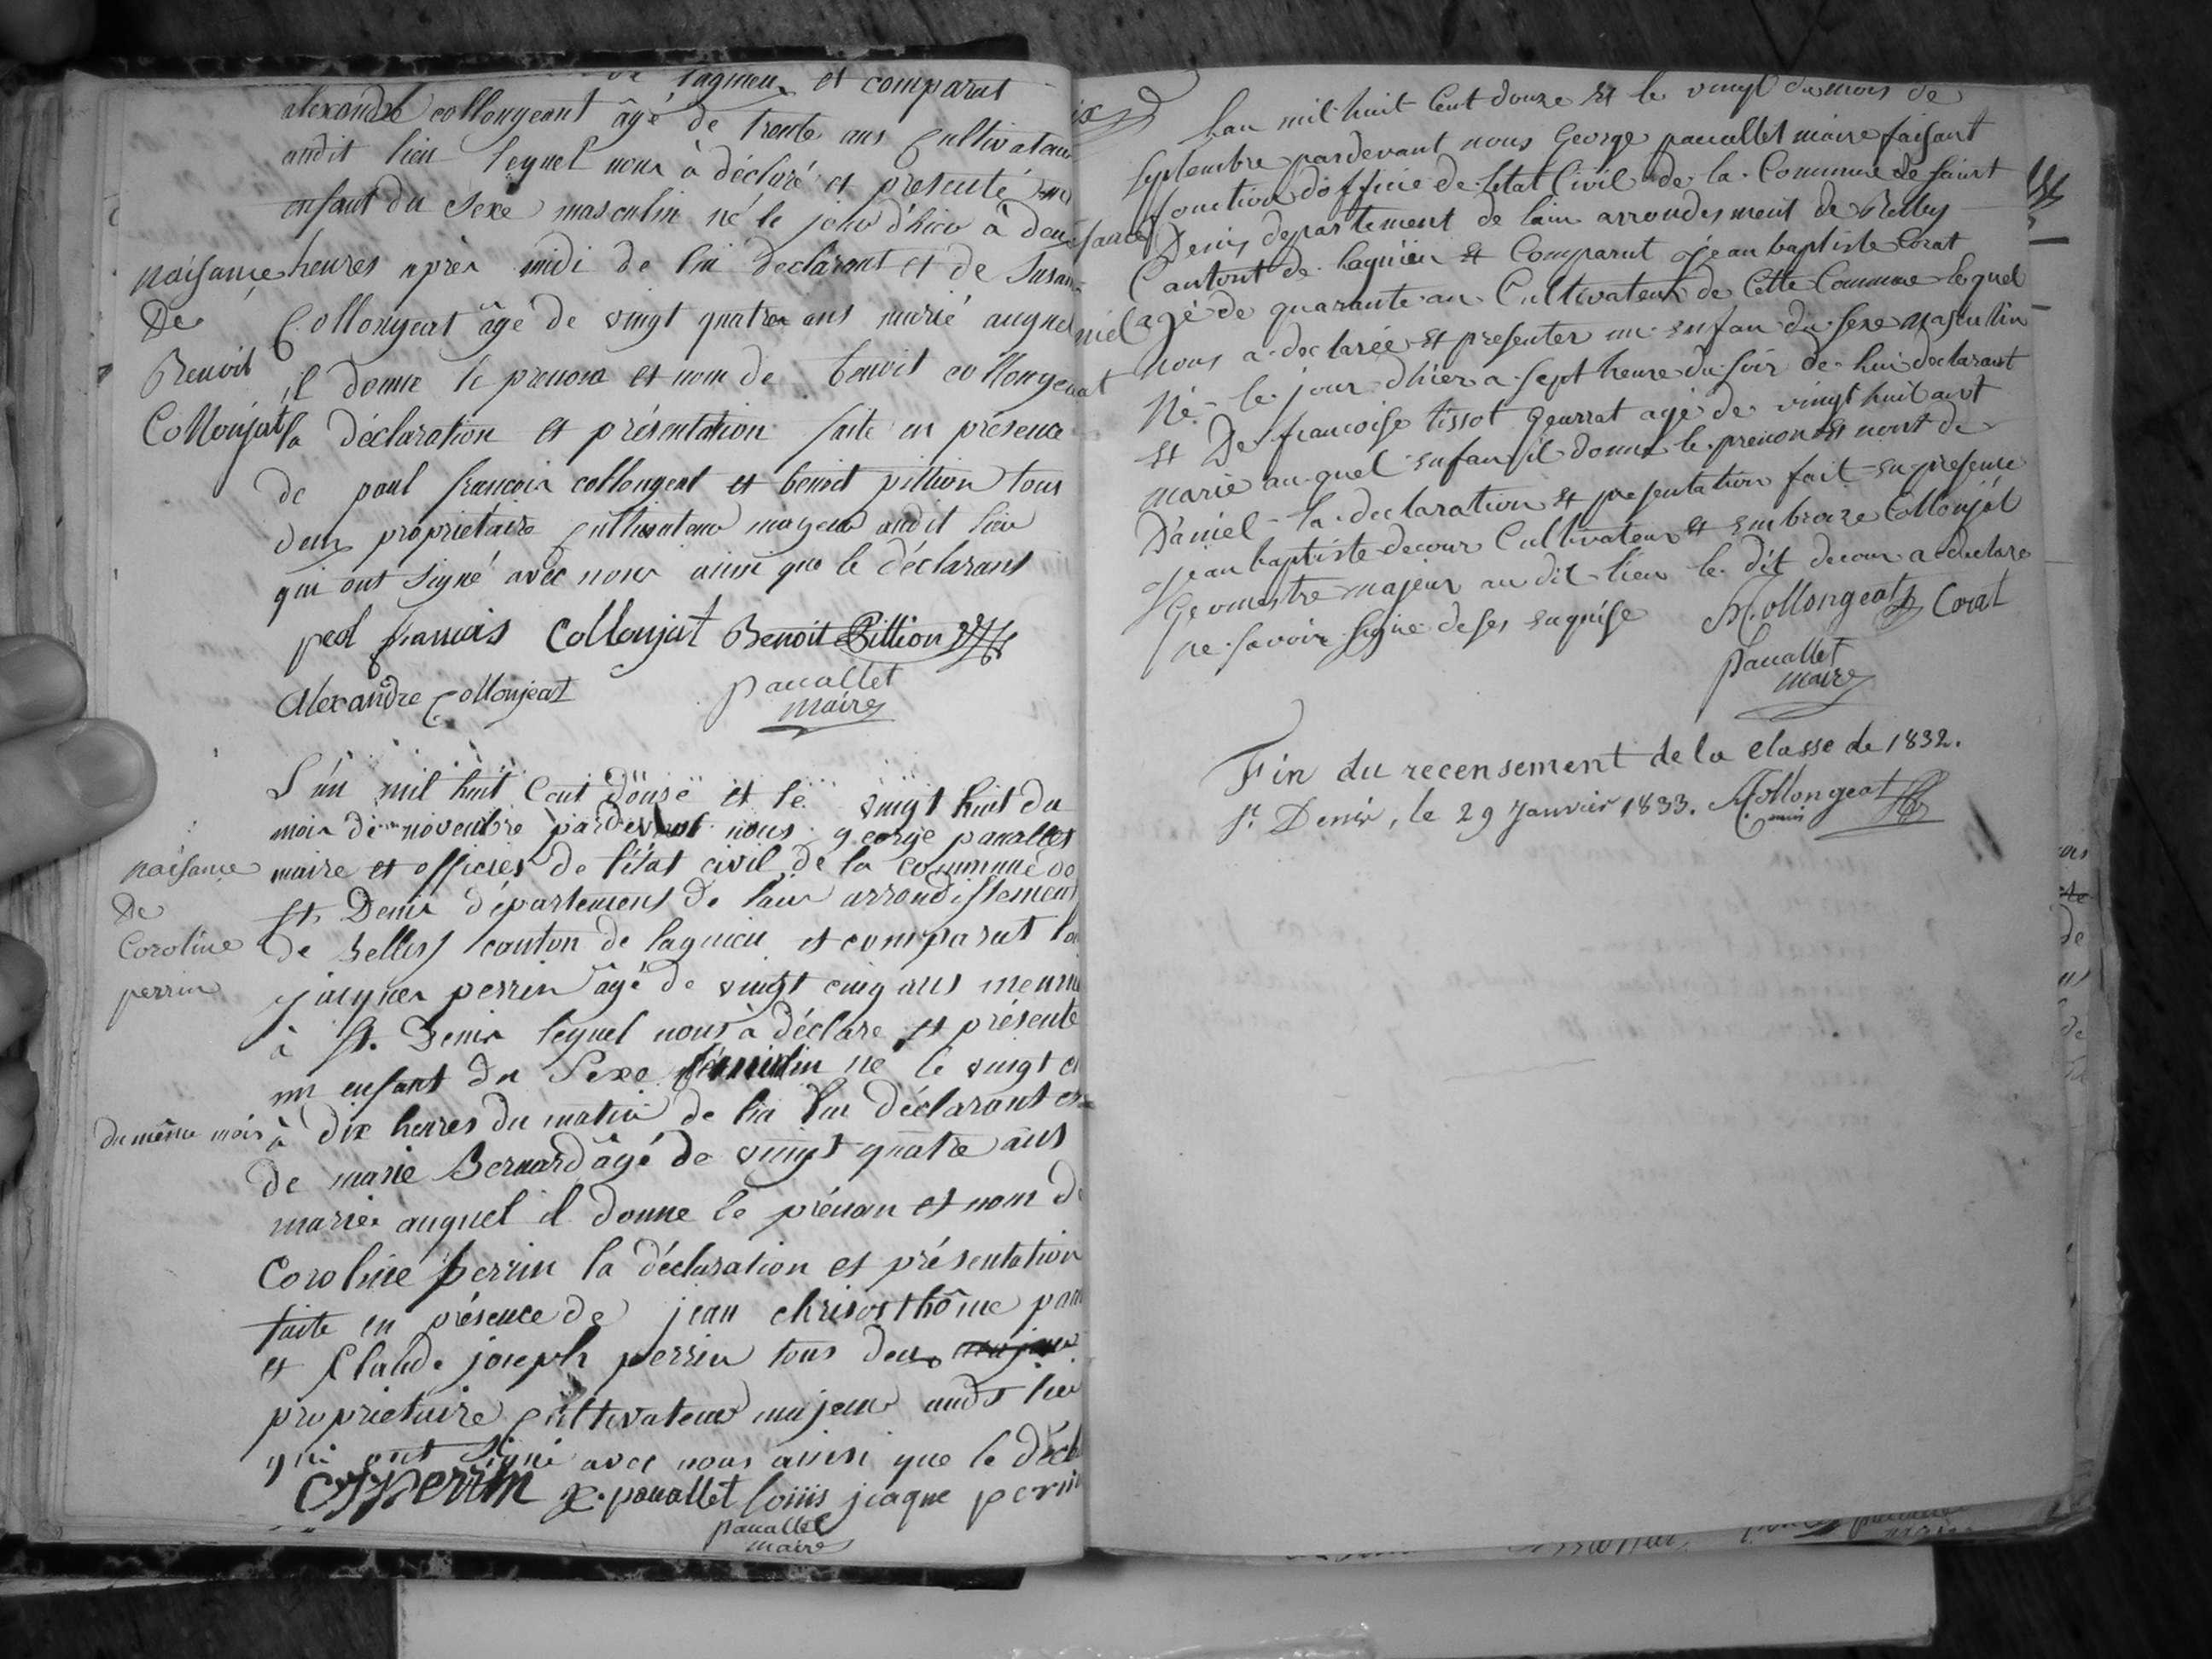 lagnieu et comparut
alexandre collongeant âgé de trente ans Cultivateur
audit lieu lequel nous à déclaré et présenté un
enfant du Sexe masculin né le jour d'hier à deux
naisance
De
Benoit
Collonjat
heures après midi de lui déclarant et de Susanne
Collonjeat âgé de vingt quatre ans marié auquel
il donne le prenom et nom de benoit collongeant
la déclaration et présentation faite en présence
de paul françois collongeat et benoit pittion tous
deux proprietaire Cultivateur majeur audit lieu
qui ont signé avec nous ainsi que le déclarant
pol francois Collonjat Benoit Pittion
Alexandre Collonjeat pauallet
maire
L'an mil huit Cent douse et le vingt huit du
mois de novembre pardevant nous george pauallet
naisance
De
Coroline
perrin
maire et officier de l'état civil de la commune de
St. Denis département de lain arrondissement
de Belley canton de lagnieu et comparut
jacques perrin âgé de vingt cinq ans
à St. Denis lequel nous à déclare et présenté
un enfant du Sexe féminin né le vingt
du même mois
à dix heures du matin de lui déclarant et
de marie Bernard âgé de vingt quatre ans
mariée auquel il donne le prénom et nom de
Coroline perrin la déclaration et présentation
faite en présence de jean chrisosthôme
et Claude joseph perrin tous deux majeur
proprietaire Cultivateur majeur audt lieu
qui ont signé avec nous ainsi que le
CJ perrin pauallet loiiis jcaque perrin
pauallet
maire
Lan mil huit Cent douze et le vingt du mois de
Septembre pardevant nous George pauallet maire faisant
fonction dofficie de letat Civil de la Commune de saint
Denis departement de lain arrondesment de Belley
Cantont de lagnieu et Comparut jean baptiste Corat
agé de quarante an Cultivateur de Cette Commune lequel
nous a declarée et presenter un enfan du sexe masculin
Né le jour d'hier a sept heure du soir de lui declarant
et De francoise tissot geurrat agé de vingt huit ant
marié au quel enfan il donne le prenom et nont de
Daniel la declaration et presentation fait en presence
jean baptiste decour Cultivateur et embroize Collonjat
Geomestre majeur au dit lieu le dit decour a declare
ne savoir signe de ses enquise Collongeat Corat
pauallet
maire
Fin du recensement de la classe de 1832.
St. Denis, le 29 Janvier 1833. Collongeat